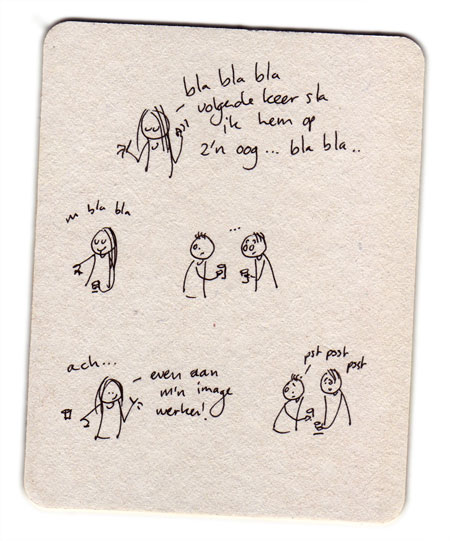 bla bla bla
volgende keer sla
ik hem op
z'n oog... bla bla..
bla bla
...
ach...
even aan
m'n image
werken!
pst psst
psst